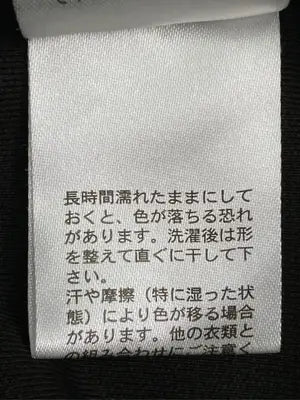 長時間濡れたままにして
おくと、色が落ちる恐れ
があります。洗濯後は形
を整えて直ぐに干して下
さい。
汗や摩擦（特に湿った状
態）により色が移る場合
があります。他の衣類と
の組み合わせにご注意く